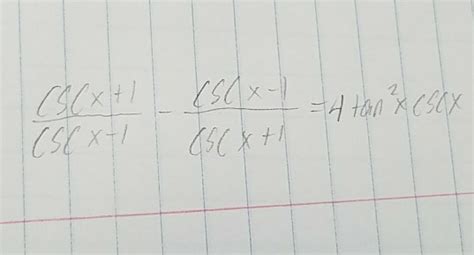 (CSCx+1)/(CSCx-1) - (CSCx-1)/(CSCx+1) = 4 tan²x CSCx